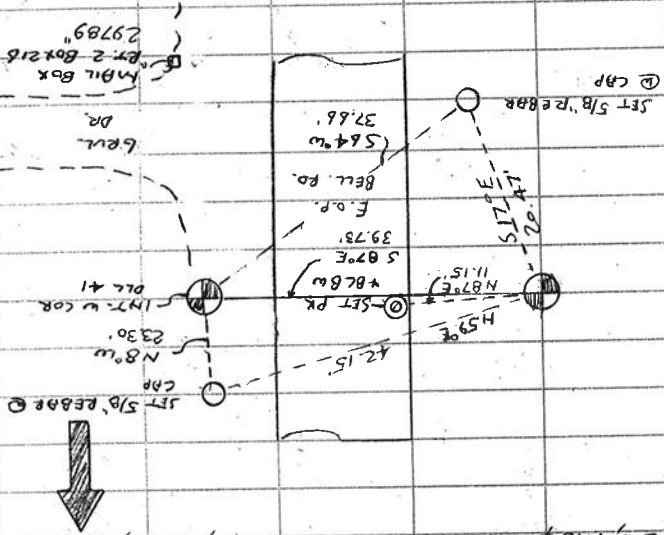 SET 5/8" REBAR @
CAP
N 8° W
23.30'
INT. W COR
DLC 41
42.15'
N 59° E
SET PK
& BLB W
N 87° E
11.15'
S 87° E
39.73'
E.O.P.
BELL RD.
S 64° W
37.66'
S 17° E
20.47'
GRVL
DR.
SET 5/8" REBAR
@ CAP
MAIL BOX
RT. 2 BOX 218
29789"